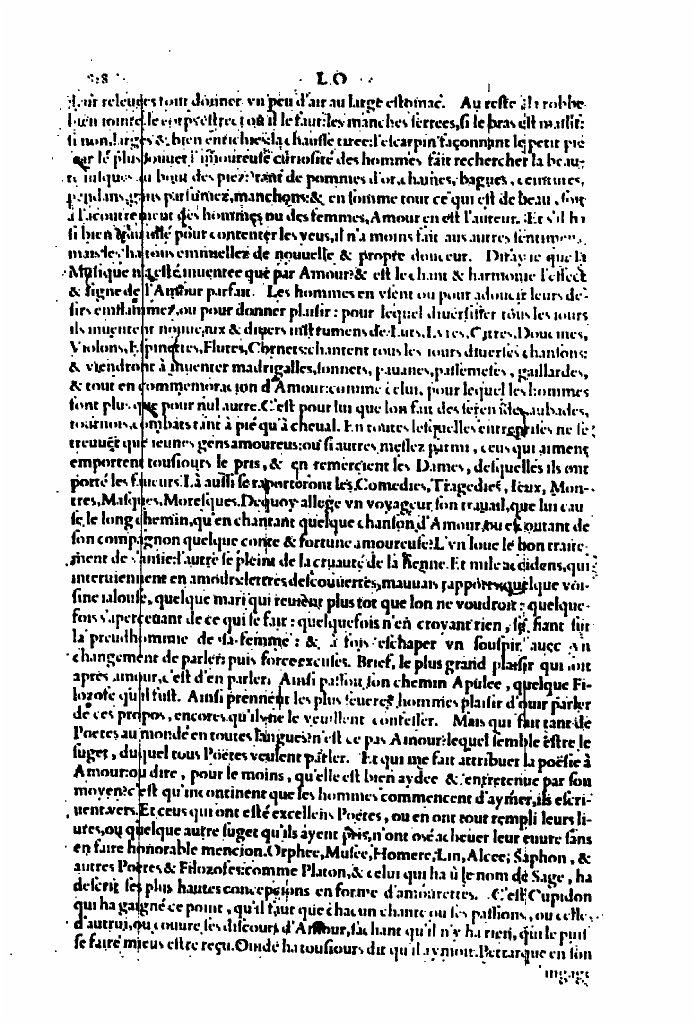 LO
releuees tout donner vn peu d'air au large estomac. Au reste robbe
bien iointe, le corps estrect ou il le faut: les manches serrees, si le bras est massif:
si non, larges & bien enrichies: la chausse tiree: l'escarpin façonnant le petit pié
le plus souuet l'amoureuse curiosité des hommes fait rechercher la beau-
té iusques au bout des piez: tant de pommes d'or, chaines, bagues, ceintures,
pendans, gans parfumez, manchons: & en somme tout ce qui est de beau, soit
à l'acoutrement des hommes ou des femmes, Amour en est l'auteur. Et s'il ha
si bien trauaillé pour contenter les yeus, il n'a moins fait aus autres sentimens
mais les ha tous emmiellez de nouuelle & propre douceur. que la
Musique n'a esté inuentee que par Amour? & est le chant & harmonie l'effect
& signe de l'Amour parfait. Les hommes en vsent ou pour adoucir leurs de-
sirs enflammez, ou pour donner plaisir: pour lequel diuersifier tous les iours
ils inuentent nouueaux & diuers instrumens de Luts, Lyres, Citres, Doucines,
Violons, Espinettes, Flutes, Cornets: chantent tous les iours diuerses chansons:
& viendront à inuenter madrigalles, sonnets, pauanes, passemeses, gaillardes,
& tout en commemoracion d'Amour: comme celui, pour lequel les hommes
font plus que pour nul autre. C'est pour lui que lon fait des serenades, aubades,
tournois, combats tant à pié qu'à cheual. En toutes lesquelles entreprises ne se
treuuet que ieunes gens amoureus: ou si autres mellez parmi, ceus qui aiment
emportent tousiours le pris, & en remercient les Dames, desquelles ils ont
porté les faueurs. Là aussi se raporteront les Comedies, Tragedies, Ieux, Mon-
tres, Masques, Moresques. Dequoy allege vn voyageur son trauail, que lui cau-
se le long chemin, qu'en chantant quelque chanson d'Amour, ou escoutant de
son compagnon quelque conte & fortune amoureuse? L'vn loue le bon traite-
ment de s'amie: l'autre se pleint de la cruauté de la sienne. Et mile accidens, qui
interuiennent en amours: lettres descouuertes, mauuais rapports, quelque voi-
sine ialouse, quelque mari qui reuient plus tot que lon ne voudroit: quelque-
fois s'aperceuant de ce qui se fait: quelquefois n'en croyant rien, se fiant sur
la preudhommie de sa femme: & à fois eschaper vn souspir auec vn
changement de parler: puis force excuses. Brief, le plus grand plaisir qui soit
après amour, c'est d'en parler. Ainsi passoit son chemin Apulee, quelque Fi-
lozofe qu'il fust. Ainsi prennent les plus seueres hommes plaisir d'ouir parler
de ces propos, encores qu'ils ne le veuillent confesser. Mais qui fait tant de
Poëtes au monde en toutes langues? n'est ce pas Amour? lequel semble estre le
suget, duquel tous Poëtes veulent parler. Et qui me fait attribuer la poësie à
Amour: ou dire, pour le moins, qu'elle est bien aydee & entretenue par son
moyen? c'est qu'incontinent que les hommes commencent d'aymer, ils escri-
uent vers. Et ceus qui ont esté excellens Poëtes, ou en ont tout rempli leurs li-
ures, ou quelque autre suget qu'ils ayent pris, n'ont osé acheuer leur euure sans
en faire honorable mencion. Orphee, Musee, Homere, Lin, Alcee, Saphon, &
autres Poëtes & Filozofes: comme Platon, & celui qui ha ù le nom de Sage, ha
descrit ses plus hautes concepcions en forme d'amourettes. C'est Cupidon
qui ha gaigné ce point, qu'il faut que chacun chante ou ses passions, ou celles
d'autrui, ou couure ses discours d'Amour, sachant qu'il n'y ha rien, qui le puist
se faire mieus estre reçu. Ouide ha tousiours dit qu'il aymoit. Petrarque en son